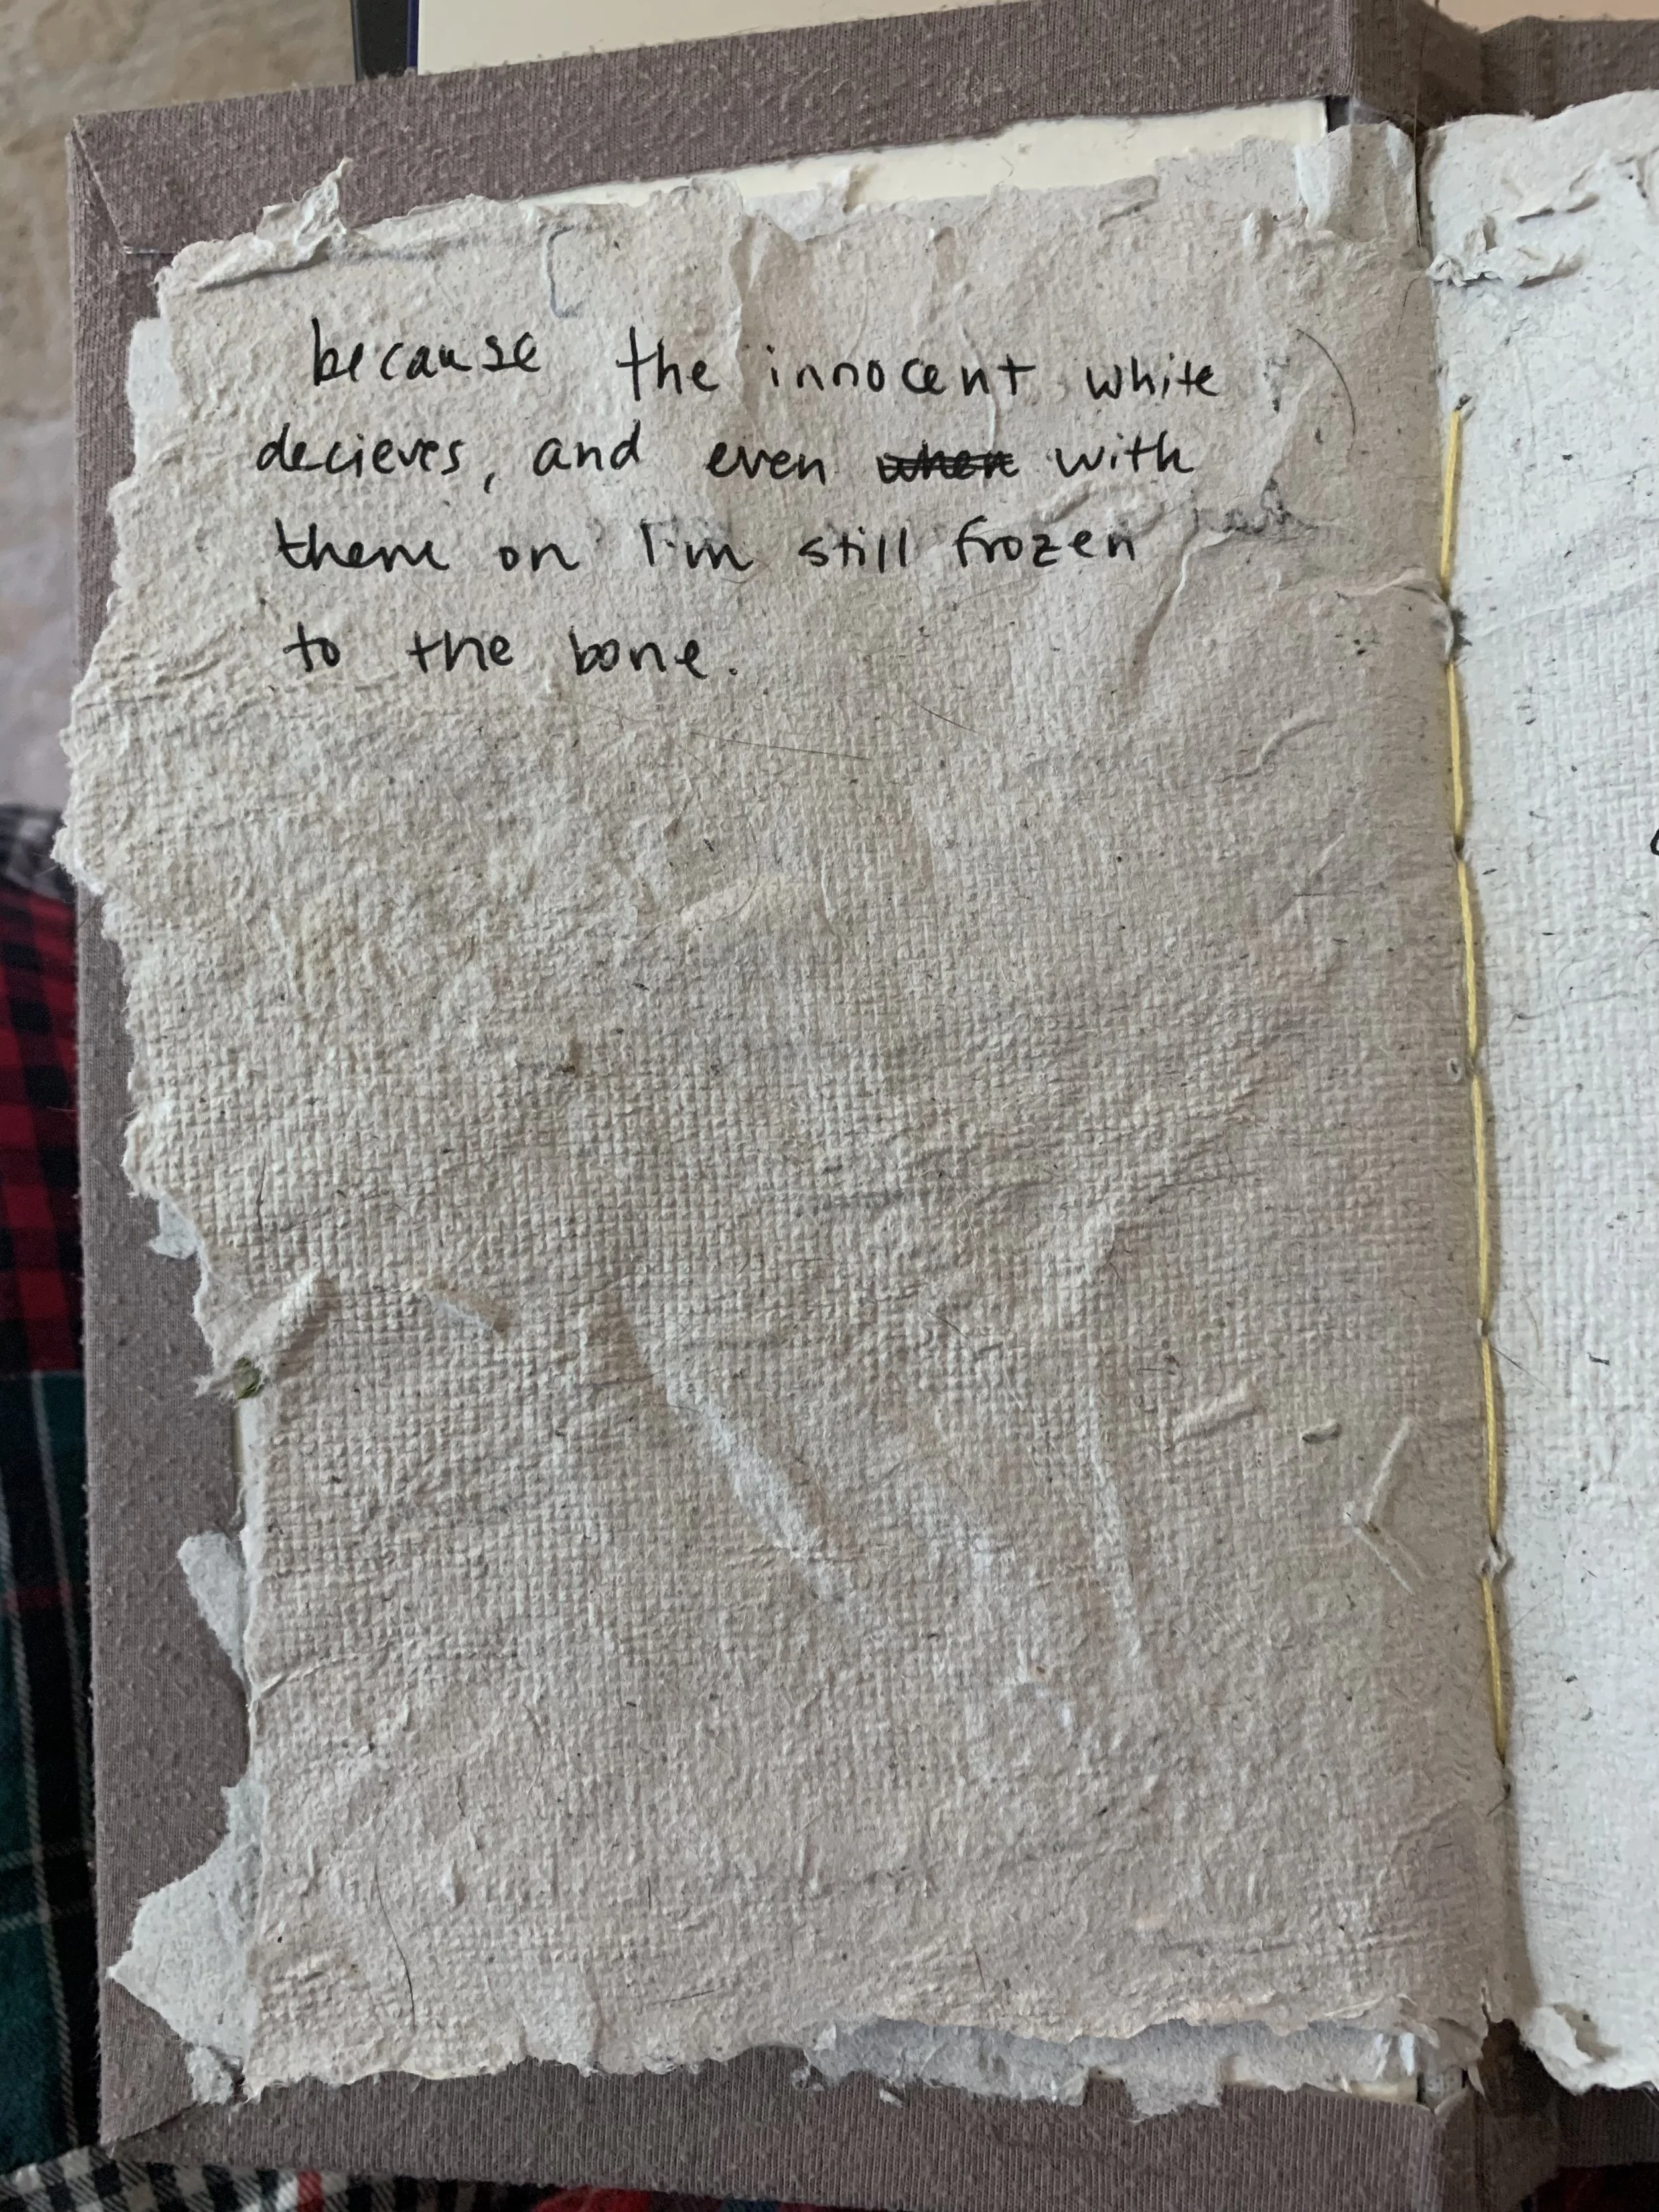 because the innocent white
decieves, and even when with
them on I'm still frozen
to the bone.